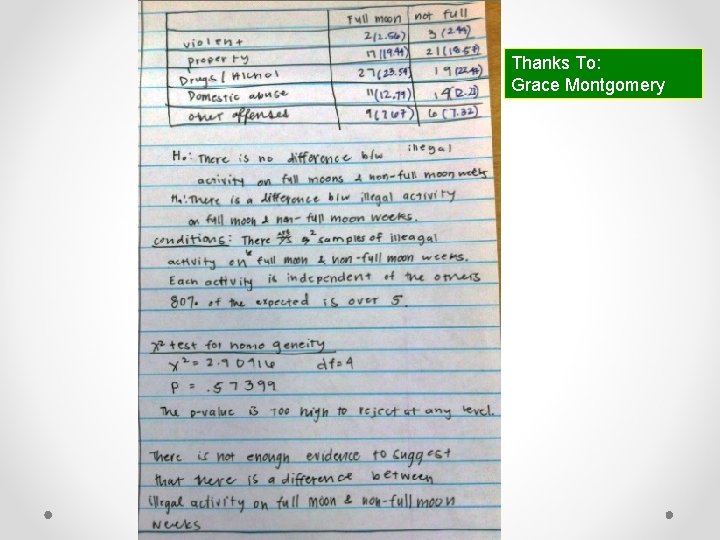 Full moon not full
violent 2(2.56) 3 (2.44)
property 17 (19.44) 21(18.57)
Drugs/Alchol 27(23.54) 19(22.47)
Domestic abuse 11(12.79) 14(12.21)
other offenses 9(7.67) 6 (7.32)
Thanks To:
Grace Montgomery
Ho: There is no difference b/w illegal
activity on full moons & non-full moon weeks
Ha: There is a difference b/w illegal activity
on full moon & non-full moon weeks.
conditions: There are 2 samples of illeagal
activity on full moon & non-full moon weeks.
Each activity is independent of the others
80% of the expected is over 5.
χ² test for homogeneity
χ² = 2.90916 df=4
P = .57399
The p-value is too high to reject at any level.
There is not enough evidence to suggest
that there is a difference between
illegal activity on full moon & non-full moon
weeks